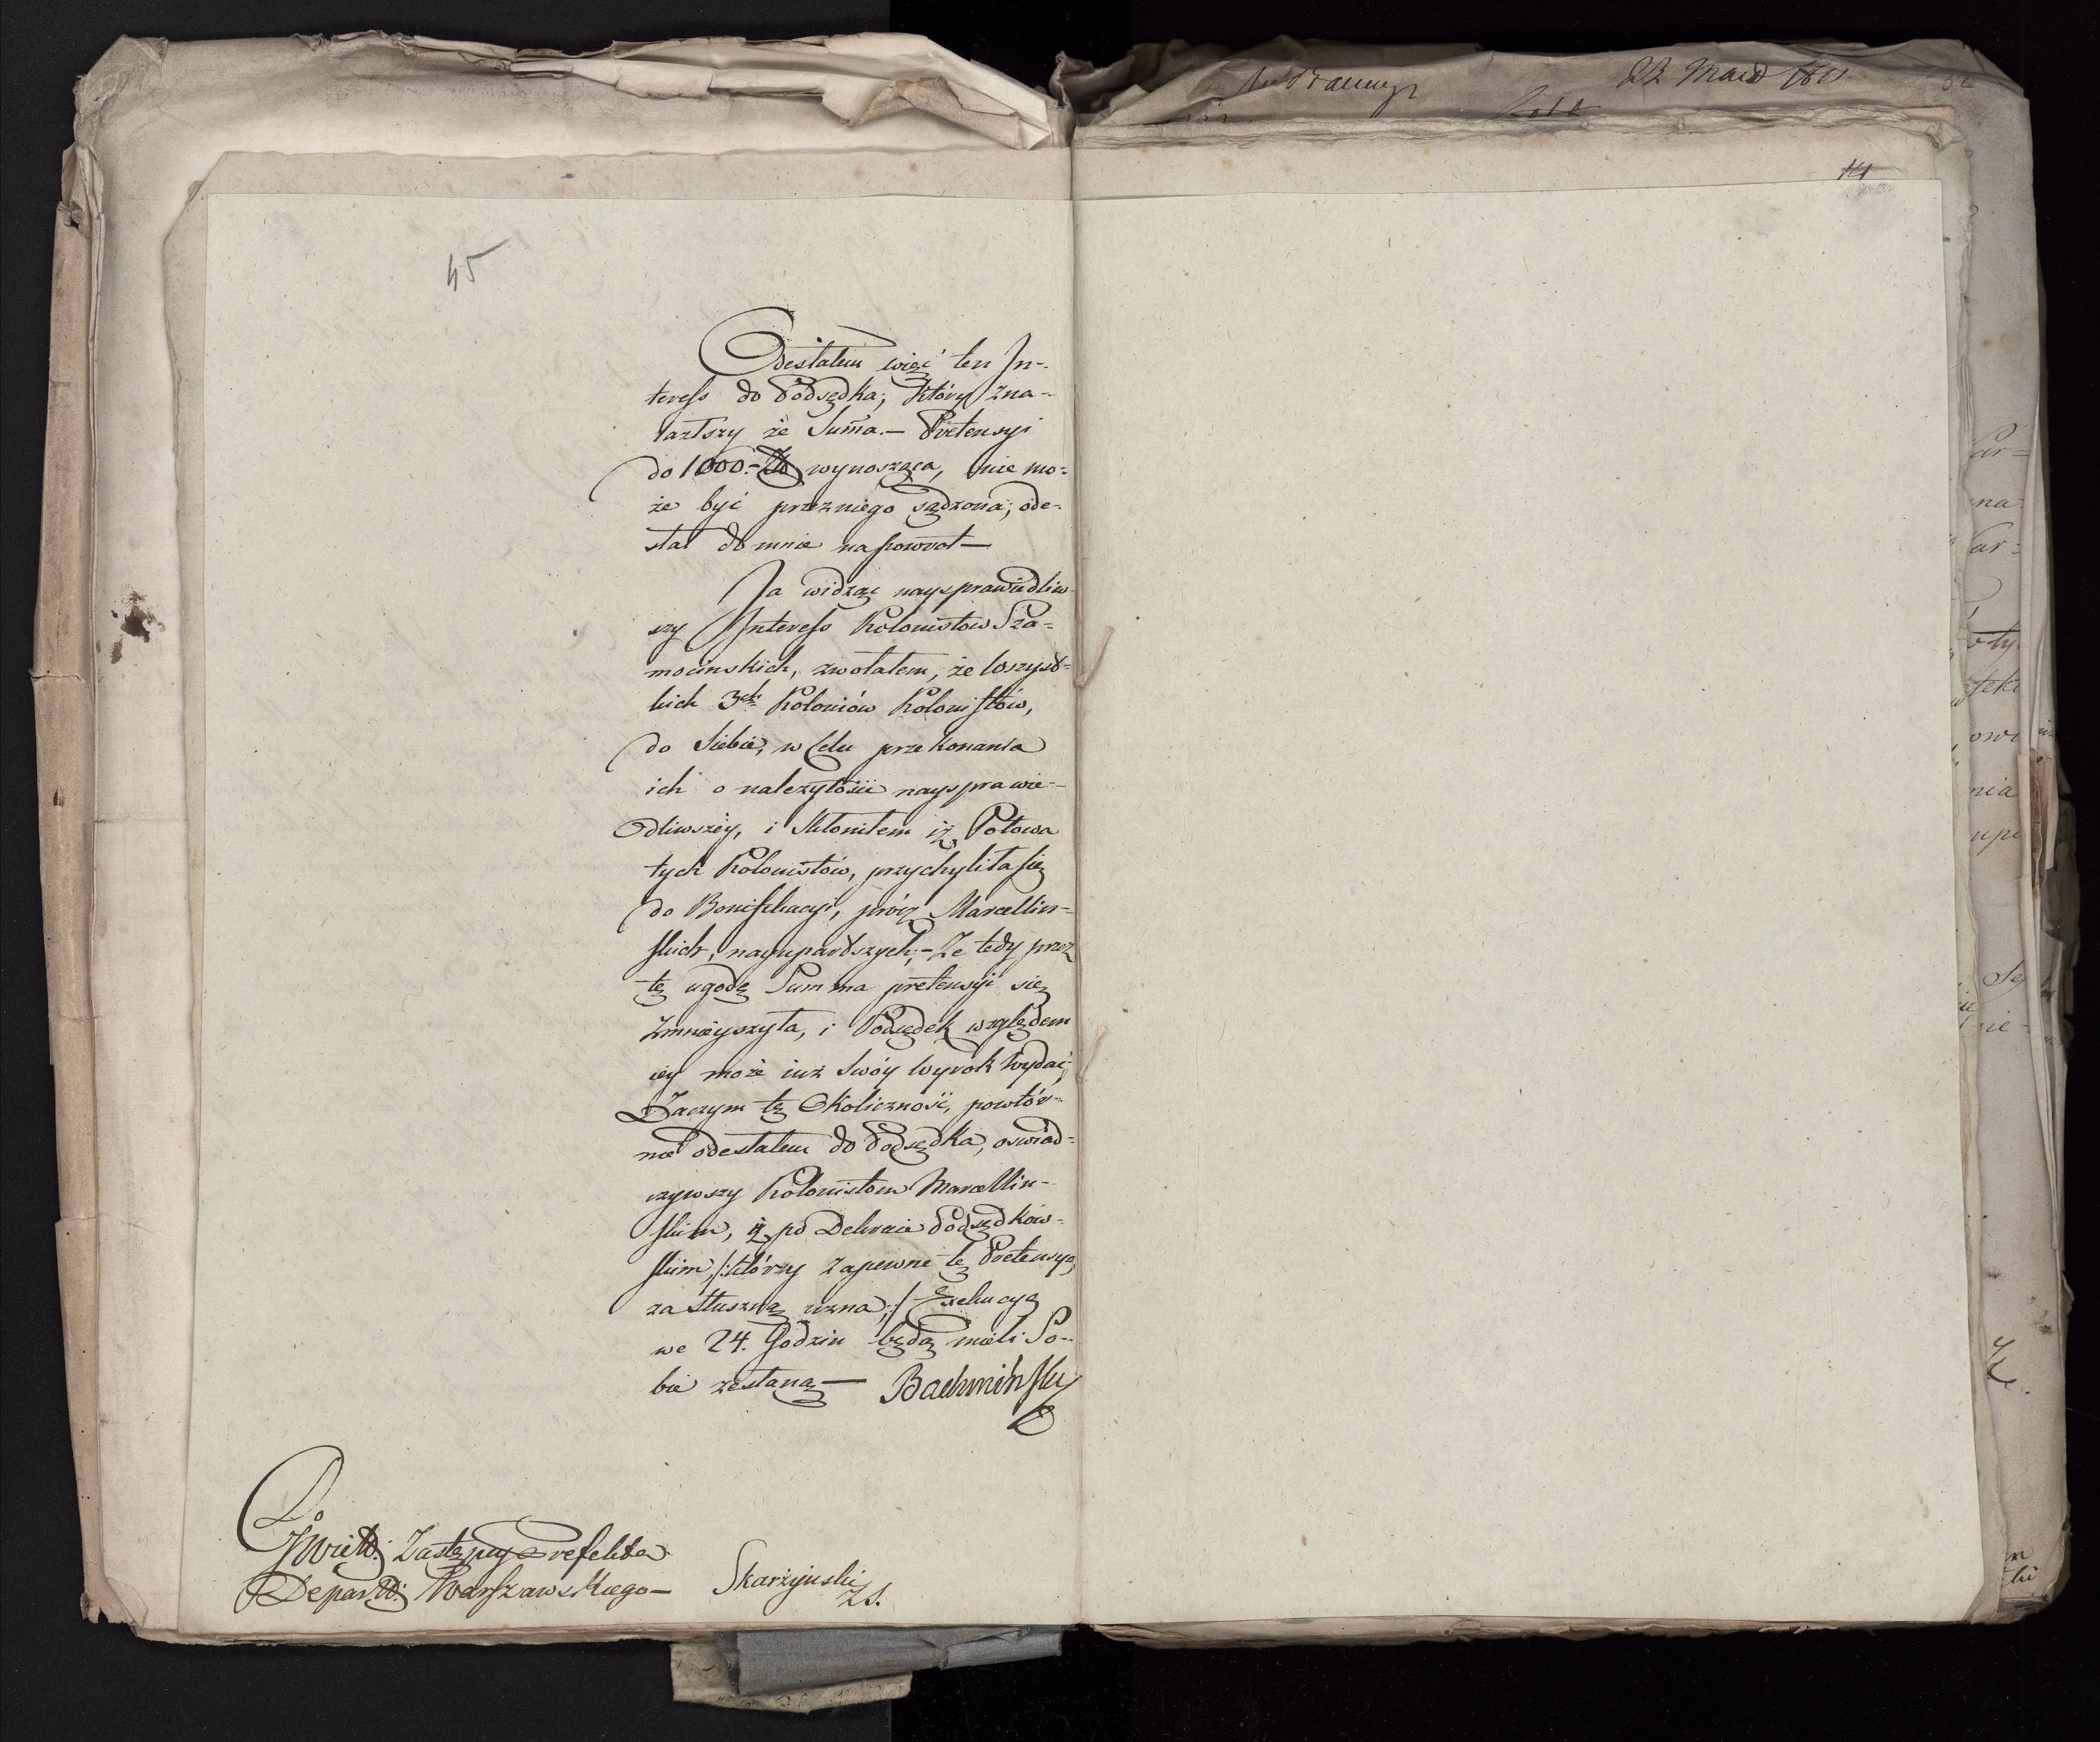 45
Odesłałem więc ten In-
teress do Podsędka, który zna-
lazłszy że Summa. — Pretensyi
do 1000.- Zł wynosząca, nie mo-
że być przez niego sądzona, ode-
słał do mnie napowrot —
Ja widząc naysprawiedliw-
szy Interess Kolonistow Sza-
mocinskich, zwołałem, że wszyst-
kich 3ch Koloniów Kolonistów,
do Siebie, w Celu przekonania
ich o należytości nayspra wie-
dliwszey, i skłoniłem iż Połowa
tych Kolonistów, przychyliła się
do Bonifikacyi, prócz Marcellin-
skich, nayupartszych, — Że tedy przez
tę ugodę Summa pretensyi się
zmnieyszyła, i Podsędek względem
iey może iuż Swóy Wyrok Wydać,
Zaczym tę Okoliczność, powtór-
nie odesłałem do Podsędka, oswiad-
czywszy Kolonistom Marcellin-
skim, iż po Dekrecie Podsędkow-
skim, /: którzy zapewne tę Pretensyą
za Słuszną uzna, :/ Exekucyą
we 24. Godzin będą mieli So-
bie zesłaną — Bachminsky
Do
JWielo: Zastępcy Prefekta
Depart: Warszawskiego —
Skarżynski
ZS.
14
22 Maia